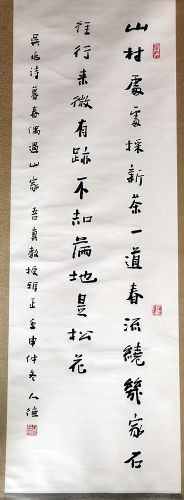 山村處處採新茶一道春流繞幾家石
徑行來微有跡不知滿地是松花
吳兆詩暮春偶過山家 吾真教授雅正 壬申仲冬人德